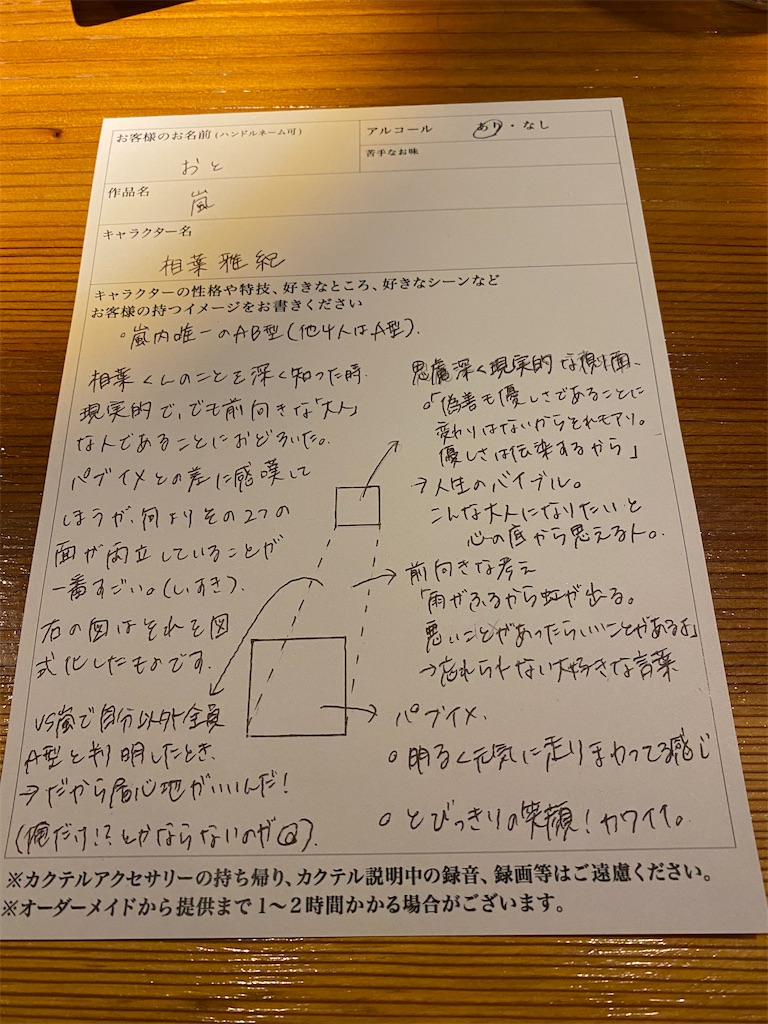 お客様のお名前(ハンドルネーム可)
おと
アルコール あり・なし
苦手なお味
作品名
嵐
キャラクター名
相葉雅紀
キャラクターの性格や特技、好きなところ、好きなシーンなど
お客様の持つイメージをお書きください
○嵐内唯一のAB型(他4人はA型).
相葉くんのことを深く知った時、
現実的で、でも前向きな「大人」
な人であることにおどろいた。
パブイメとの差に感嘆して
しまうが、何よりその2つの
面が両立していることが
一番すごい。(しすき).
右の図はそれを図
式化したものです.
VS嵐で自分以外全員
A型と判明したとき、
→だから居心地がいいんだ!
(俺だけ!?とかならないのが
思慮深く現実的な側面、
○「偽善も優しさであることに
変わりはないからそれもアリ。
優しさは伝染するから」
→人生のバイブル。
こんな大人になりたいと
心の底から思える人。
前向きな考え
「雨がふるから虹が出る。
悪いことがあったらいいことがあるよ」
→忘れられない大好きな言葉
パブイメ.
○明るく元気に走りまわってる感じ
○とびっきりの笑顔!カワイイ。
※カクテルアクセサリーの持ち帰り、カクテル説明中の録音、録画等はご遠慮ください。
※オーダーメイドから提供まで1〜2時間かかる場合がございます。